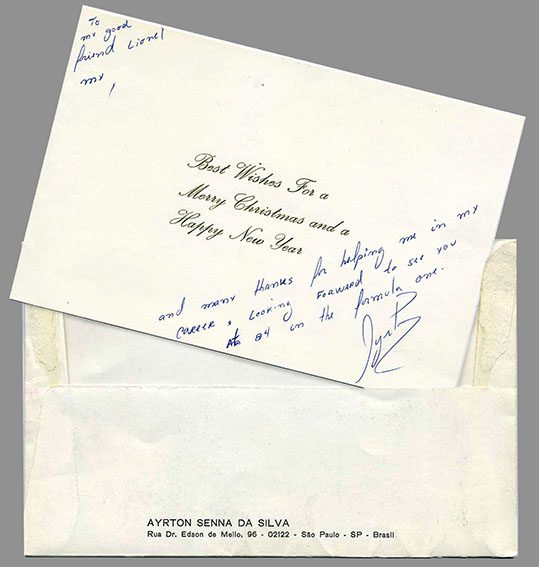 To
my good
friend Lionel
my
Best Wishes For a
Merry Christmas and a
Happy New Year
and many thanks for helping me in my
career & Looking Forward to see you
84 in the formula one.
AYRTON SENNA DA SILVA
Rua Dr. Edson de Mello, 96 - 02122 - São Paulo - SP - Brasil